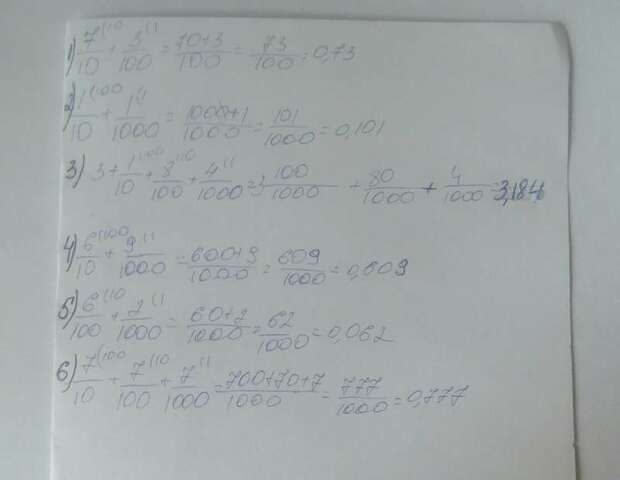 1) 7/10 (10 + 3/100 (1 = 70+3/100 = 73/100 = 0,73
2) 1/10 (100 + 1/1000 (1 = 1000+1/1000 = 101/1000 = 0,101
3) 3 + 1/10 (100 + 8/100 (10 + 4/1000 (1 = 3 100/1000 + 80/1000 + 4/1000 = 3,184
4) 6/10 (100 + 9/1000 (1 = 600+9/1000 = 609/1000 = 0,609
5) 6/100 (10 + 2/1000 (1 = 60+2/1000 = 62/1000 = 0,062
6) 7/10 (100 + 7/100 (10 + 7/1000 (1 = 700+70+7/1000 = 777/1000 = 0,777